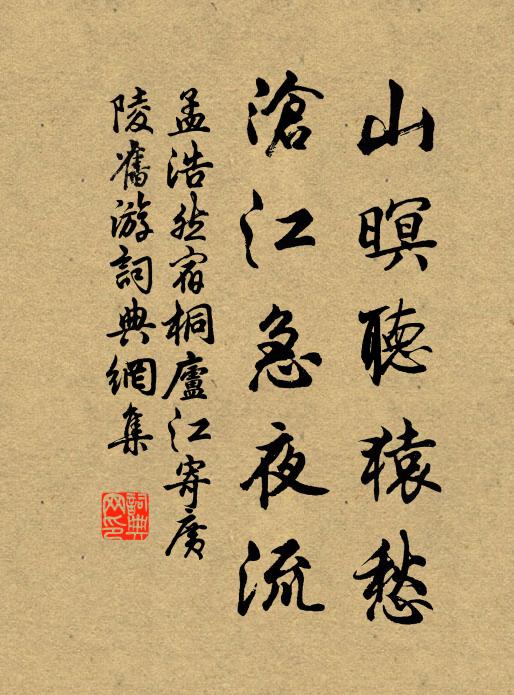 山暝聽猿愁
滄江急夜流
孟浩然宿桐廬江寄廣
陵舊游詞典網集
詞典網印